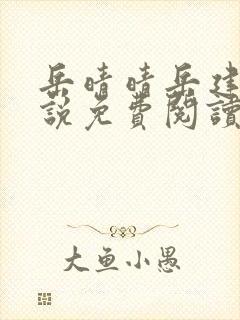 岳晴晴岳建
說免費閱讀
大鱼小愚